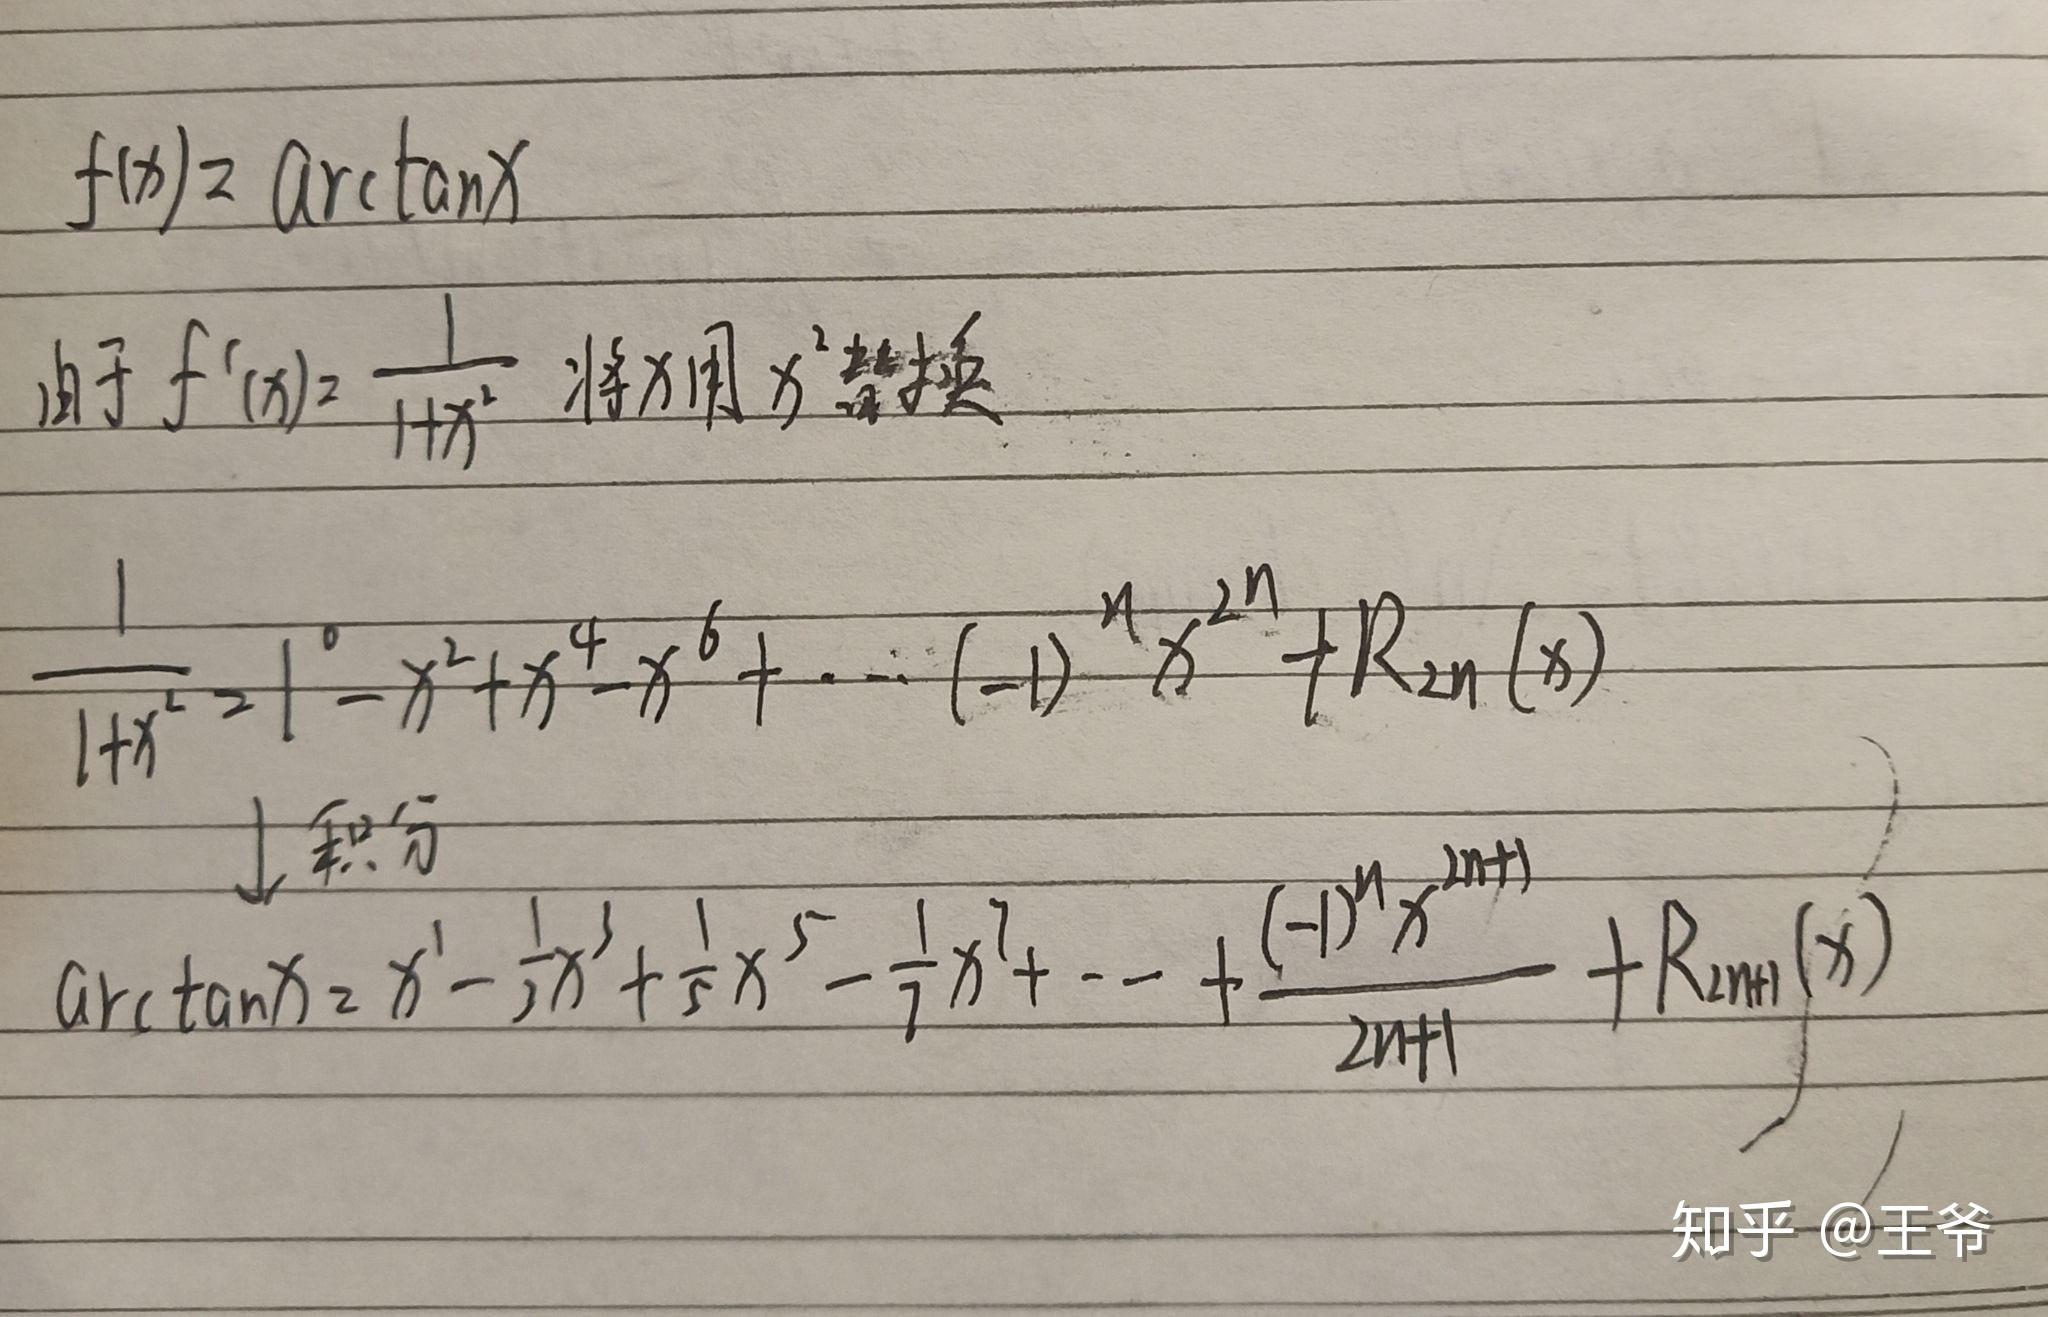 f(x)=arctanx
由于 f'(x)=1/(1+x²) 将x用x²替换
1/(1+x²)=1⁰-x²+x⁴-x⁶+⋯(-1)ⁿx²ⁿ+R₂ₙ(x)
↓积分
arctanx=x¹-1/3x³+1/5x⁵-1/7x⁷+⋯+(-1)ⁿx²ⁿ⁺¹/(2n+1)+R₂ₙ₊₁(x)
知乎 @王爷